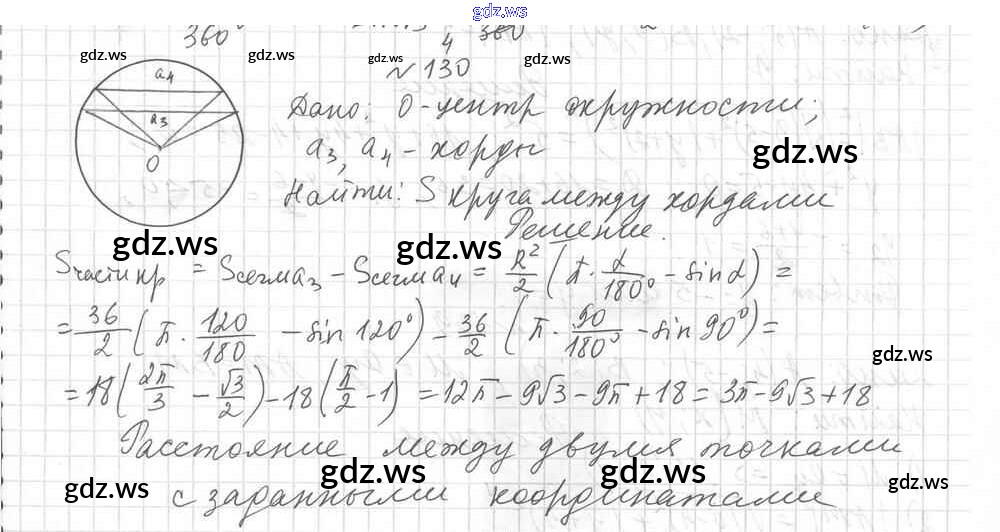 gdz.ws
360° 4 360
gdz.ws gdz.ws
№ 130
a₄
a₃
O
Дано: О-центр окружности;
a₃, a₄ - хорды
gdz.ws
Найти: S круга между хордами
Решение.
gdz.ws gdz.ws
Sчасти кр = Sсегм a₃ - Sсегм a₄ = R²/2 (π · α/180° - sin α) =
= 36/2 (π · 120/180 - sin 120°) - 36/2 (π · 90/180° - sin 90°) =
gdz.ws
= 18 (2π/3 - √3/2) - 18 (π/2 - 1) = 12π - 9√3 - 9π + 18 = 3π - 9√3 + 18
Расстояние между двумя точками
gdz.ws gdz.ws gdz.ws
с заданными координатами